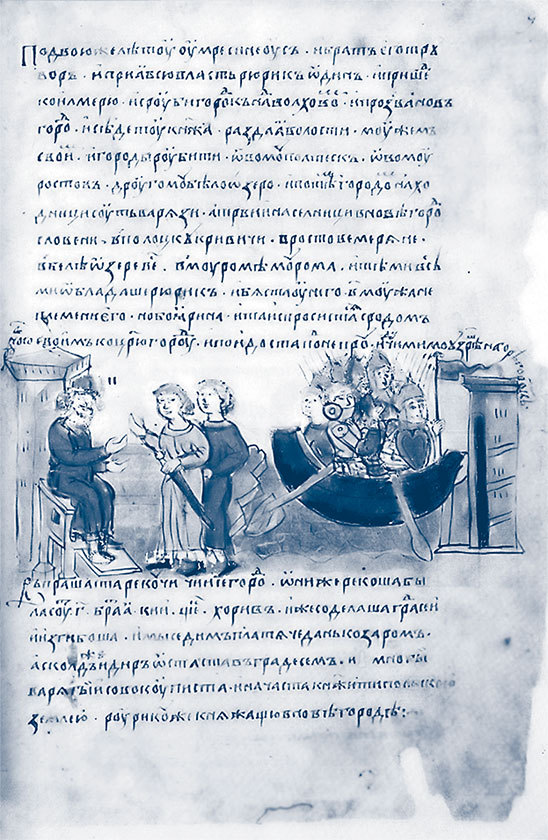 По двою же лѣтоу оумре синеоусъ · и братъ его троу
воръ · и прия всю власть рюрикъ ѿдинъ · и пришеⷣ
ко илмерю · и сроуби городокъ наⷣ волховоⷨ · и прозва новъ
гороⷣ · и сѣде тоу княжа · раздаа волости · моужемъ
своиⷨ · и городы роубити · ѡвомоу полтескъ · ѡвомоу
ростовъ · дроугомоу бѣлоѡзеро · и по тѣⷨ городоⷨ нахо
дници соуть варязи · а първии населници в новѣгороⷣ
словени · в полоцкъ кривичи · в ростове меряне ·
в белеѡзере веⷭ · в моуроме моурома · и тѣми всѣ
ми ѡбладаше рюрикъ · и бяста оу него · в҃ моужа не
племени его · но боярина · и та испросистася с родомъ
своимъ ко црюгороⷣу · и поидоста по непроу · идучи мимо
въпрашаста рекочи чии се гороⷣ · ѡни же рекоша бы
ла соуⷮ · г҃ · браⷮа · кии · щеⷦ · хоривъ · иже соделаша граⷣ сеи
и изгибоша · и мы седимъ платяче дань козаромъ ·
асколдъ же и диръ ѡстаста въ граде семъ · и многы
варягы совокоуписта · и начаста княжити польскою
землею · роурикоу же княжащю в новѣгороде